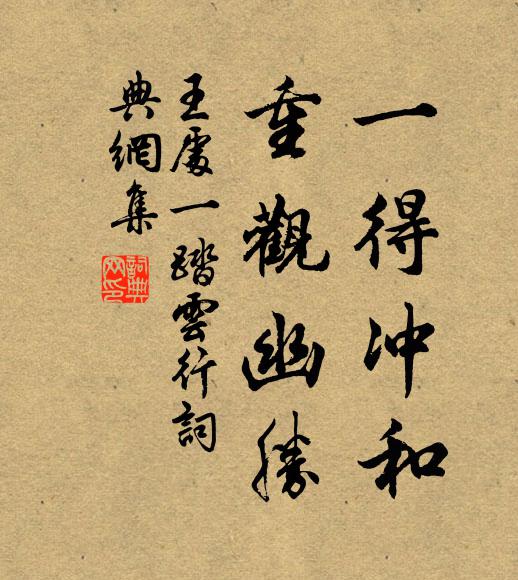 一得冲和
重觀幽勝
王處一踏雲行詞
典網集
詞典網印